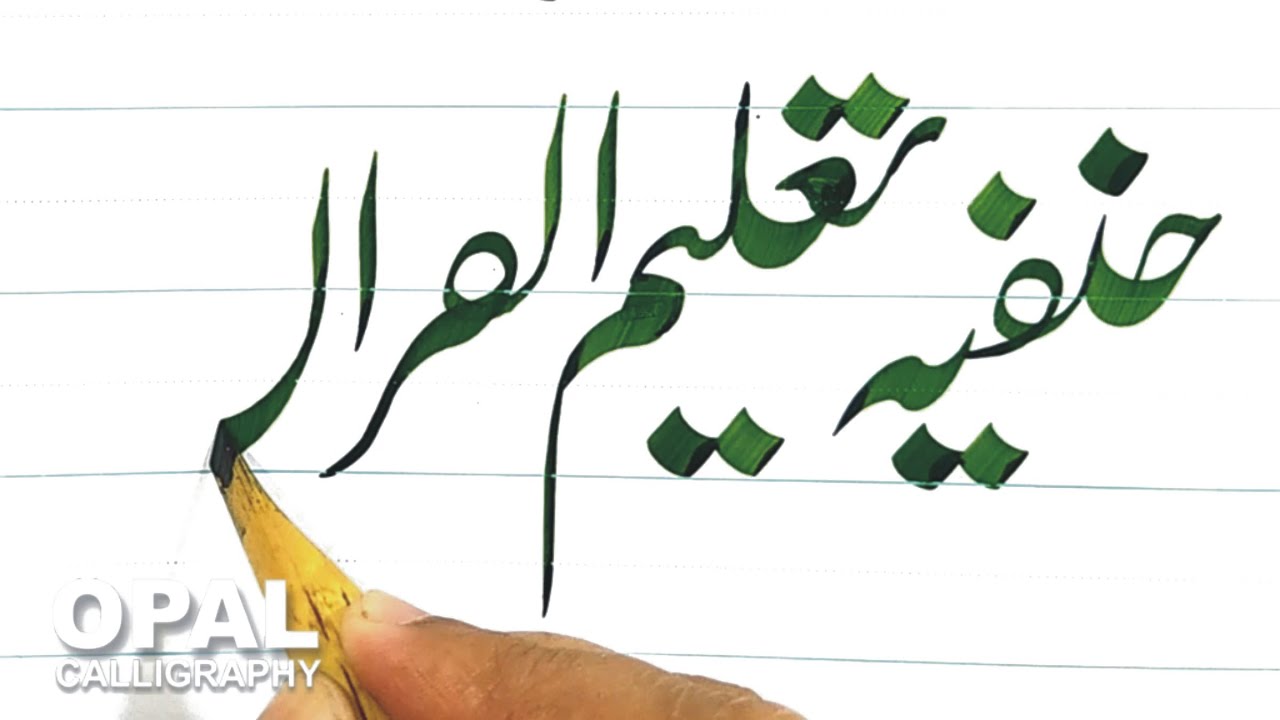 حنفیہ تعلیم القرال
OPAL
CALLIGRAPHY